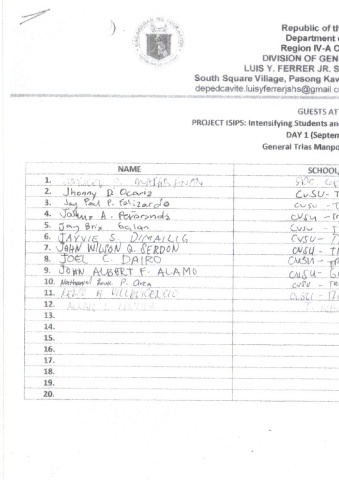 Republic of th
Department o
Region IV-A C
DIVISION OF GEN
LUIS Y. FERRER JR. S
South Square Village, Pasong Kaw
depedcavite.luisyferrerjshs@gmail.c
GUESTS AT
PROJECT ISIPS: Intensifying Students an
DAY 1 (Septem
General Trias Manpo
NAME SCHOOL,
1.
2. Jhonny D. Ocariz CVSU - T
3. Jay Paul P. Felizardo CVSU - T
4. A. Peñaranda CVSU - Tr
5. Jay Brix Galan CVSU - T
6. JAYVIE S. DIMAILIG CVSU - T
7. JOHN WILSON Q. SERDON CVSU - T
8. JOEL C. DAIRO CVSU - TR
9. JOHN ALBERT F. ALAMO CVSU - G
10. Nathaniel P. Orea CVSU - TR
11.
12.
13.
14.
15.
16.
17.
18.
19.
20.